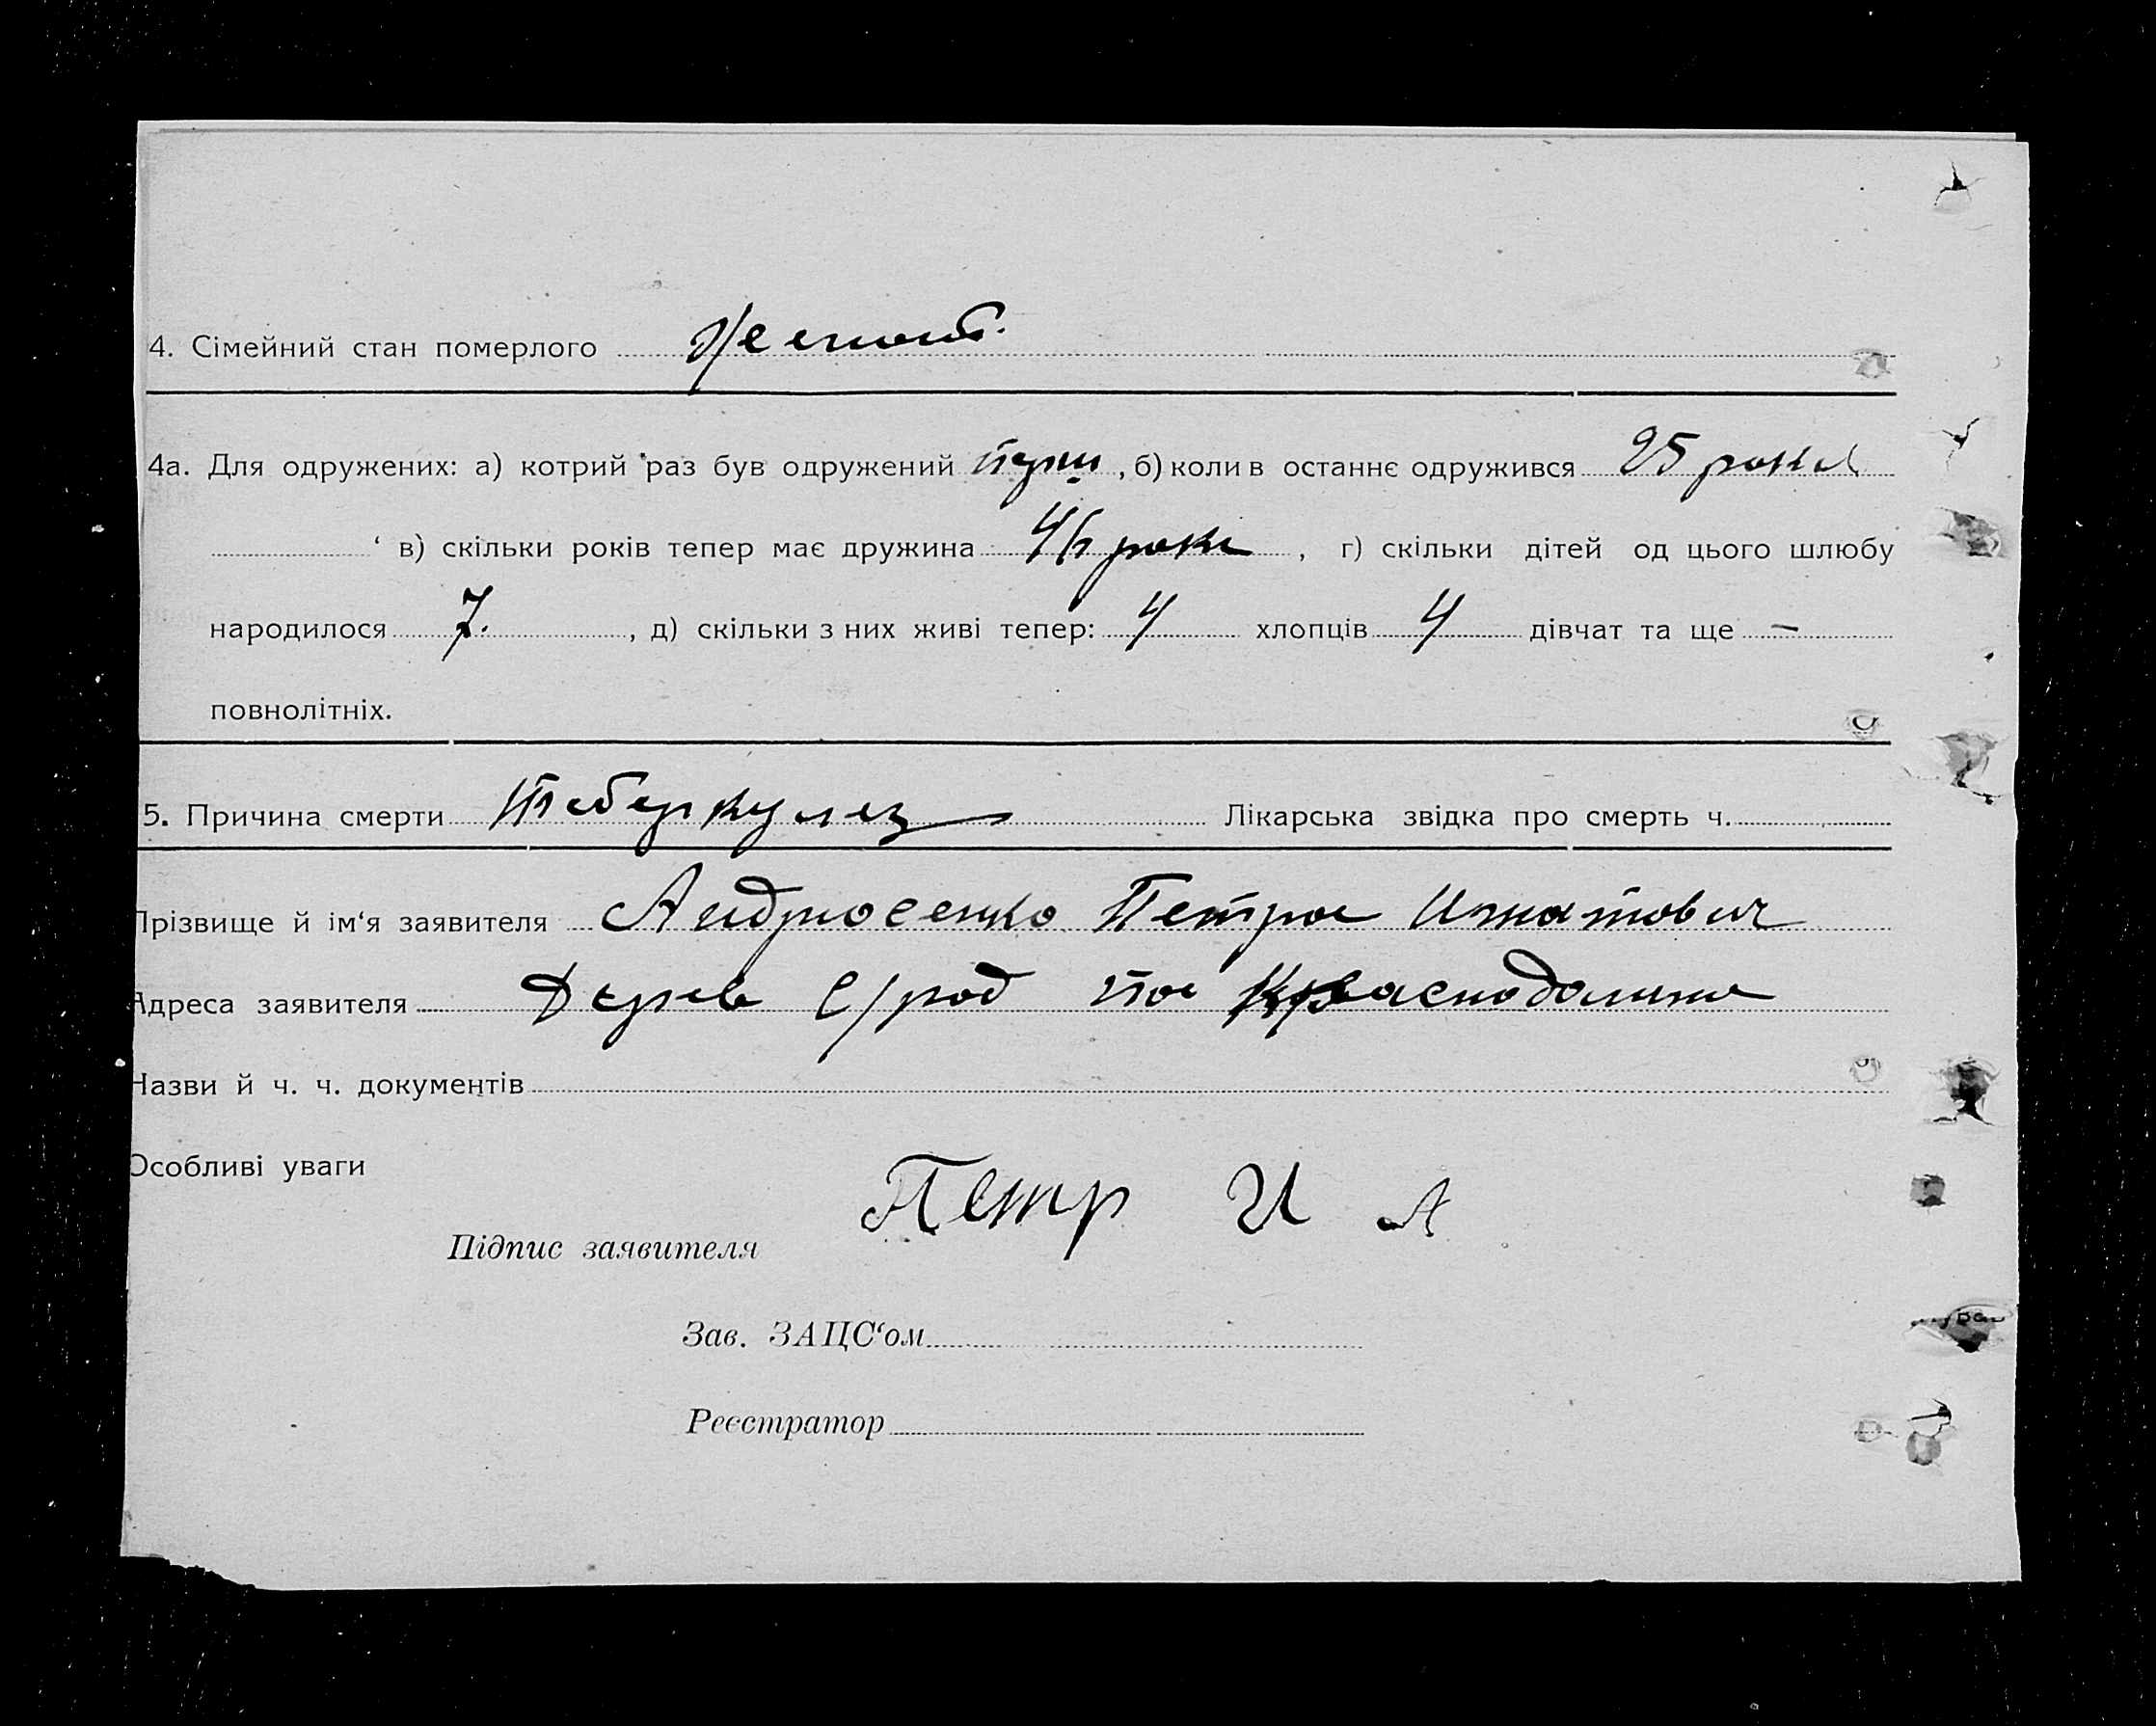 4. Сімейний стан померлого
4а. Для одружених: а) котрий раз був одружений перш, б) коли в останнє одружився 25 роки
в) скільки років тепер має дружина 46 роки, г) скільки дітей од цього шлюбу
народилося 7., д) скільки з них живі тепер: 4 хлопців 4 дівчат та ще —
повнолітніх.
5. Причина смерти Тиберкулез Лікарська звідка про смерть ч.
Прізвище й ім‘я заявителя Андросенко Петро Игнатович
Адреса заявителя с/рад пос
Назви й ч. ч. документів
Особливі уваги
Петр И А
Підпис заявителя
Зав. ЗАЦС‘ом
Реєстратор